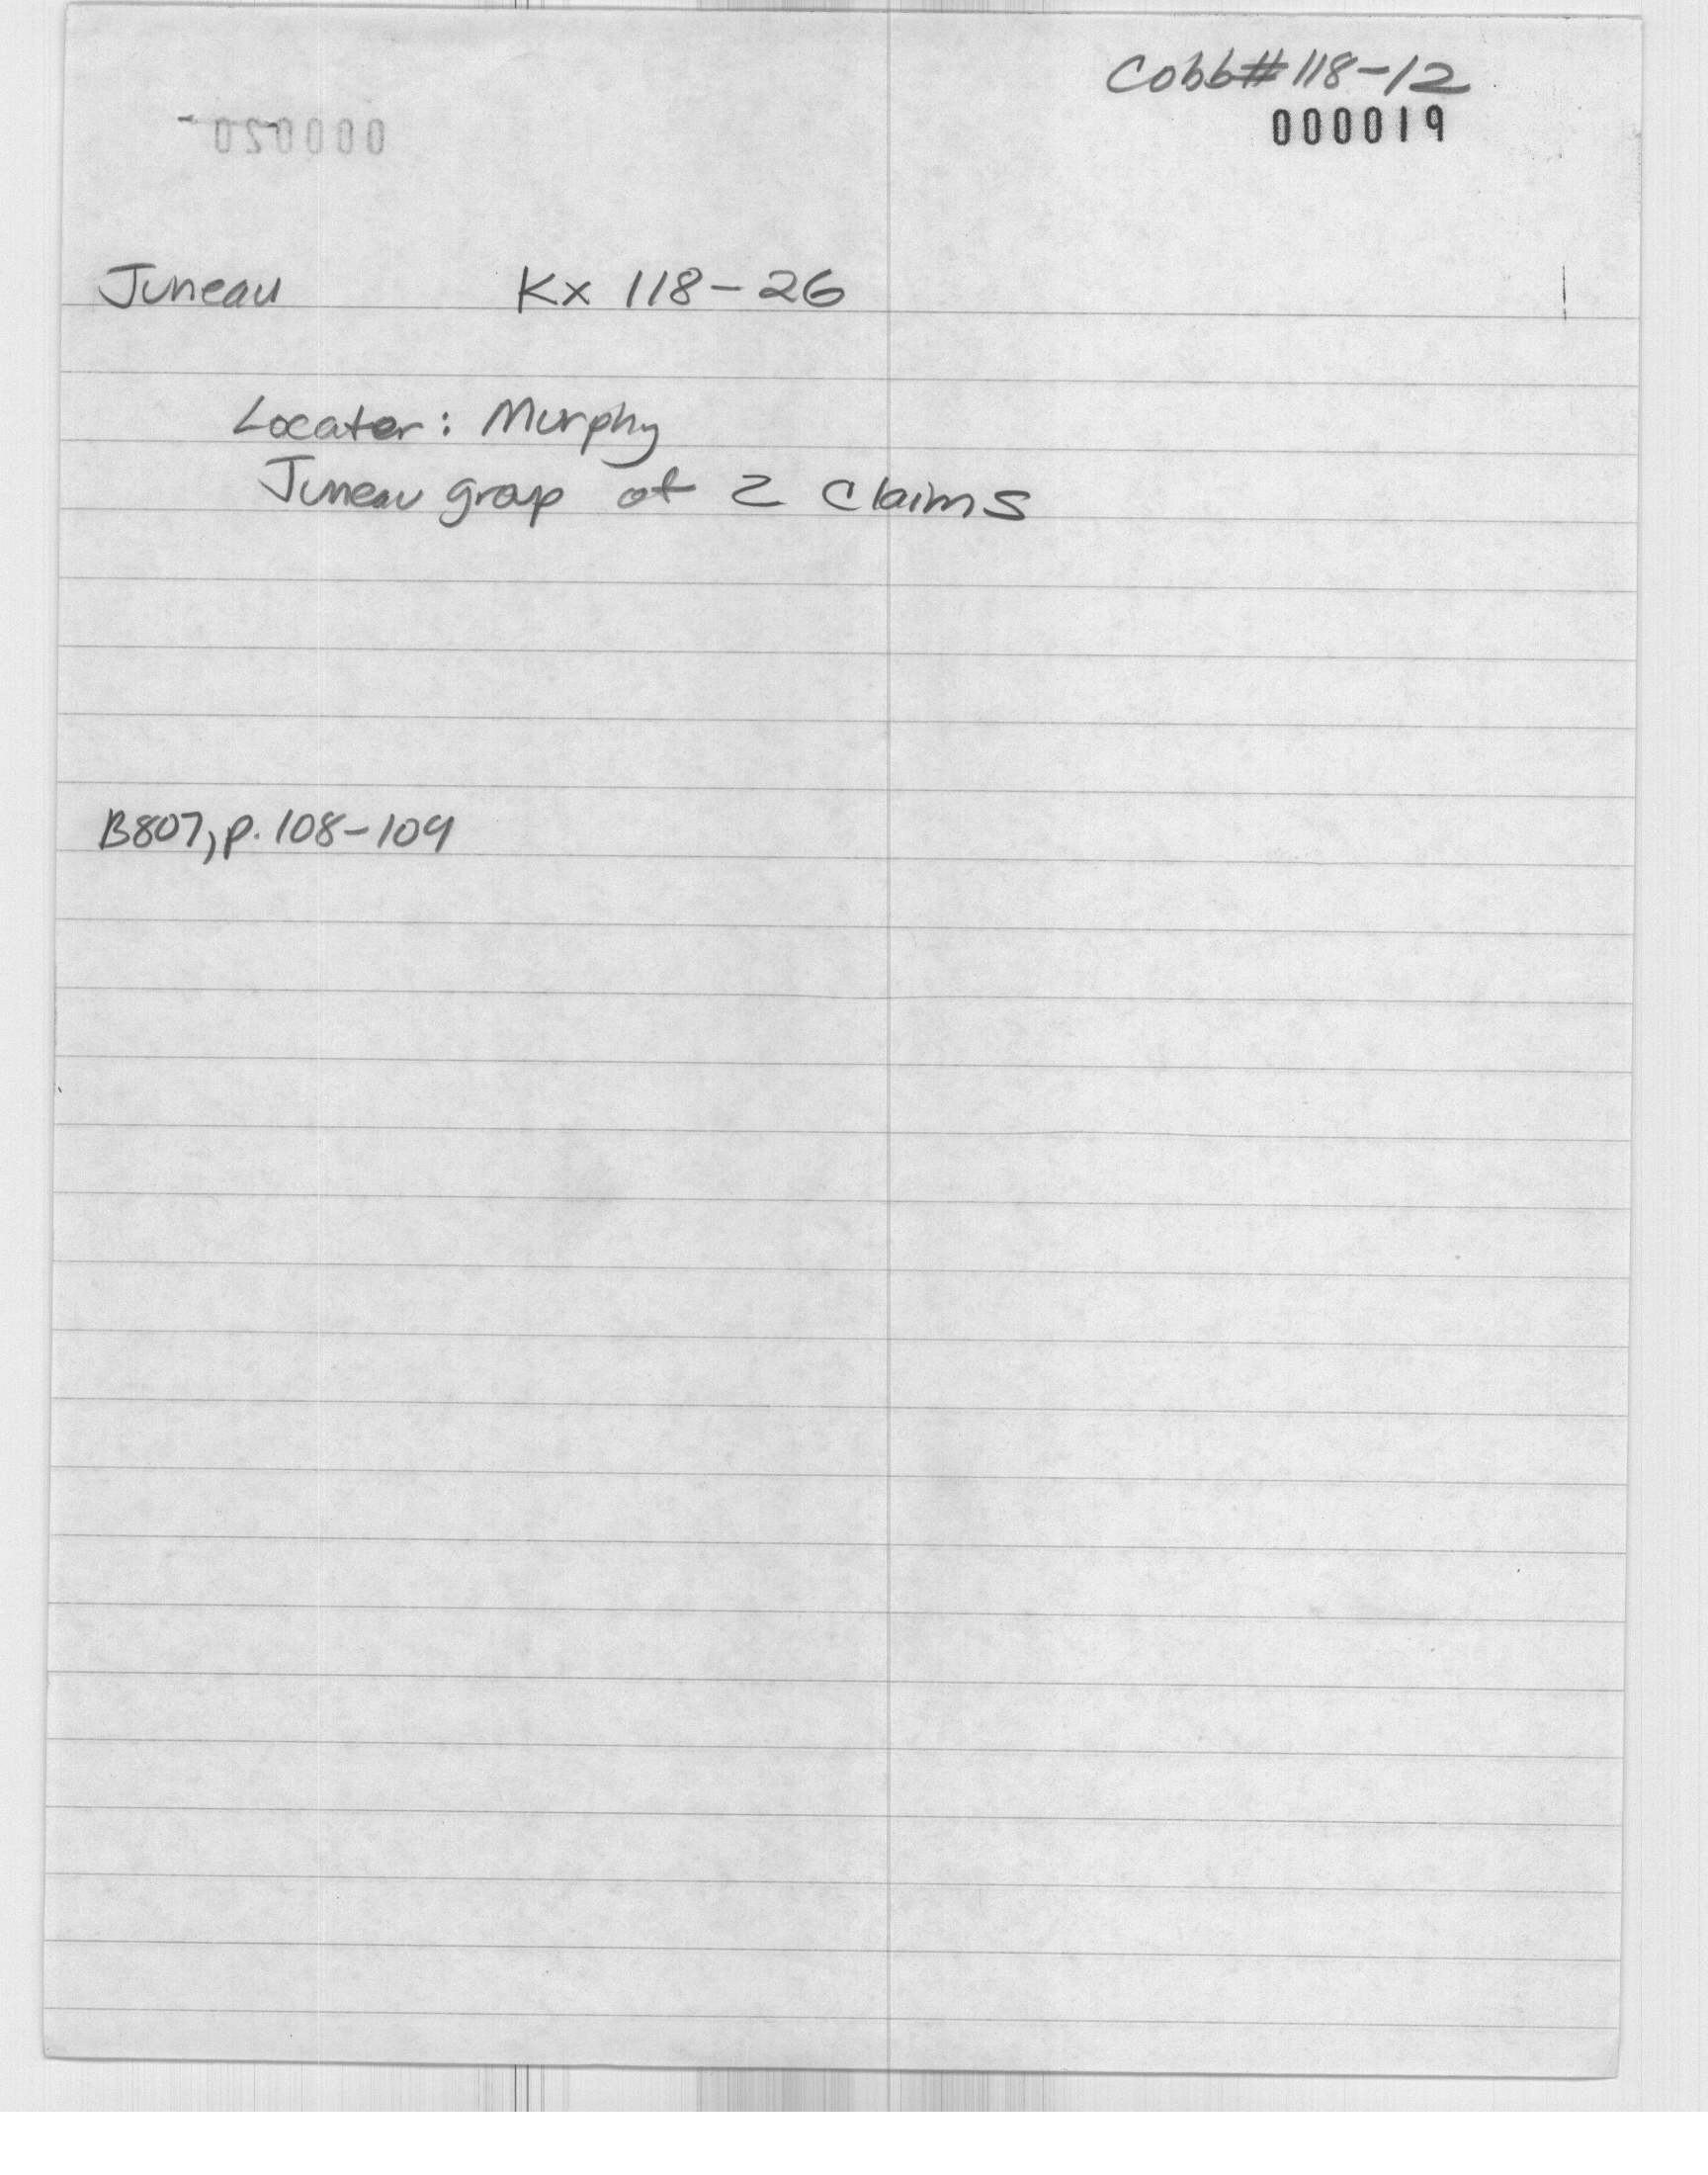 Cobb# 118-12
000019
000020
Juneau Kx 118-26
Locater: Murphy
Juneau group of 2 claims
B807, p. 108-109